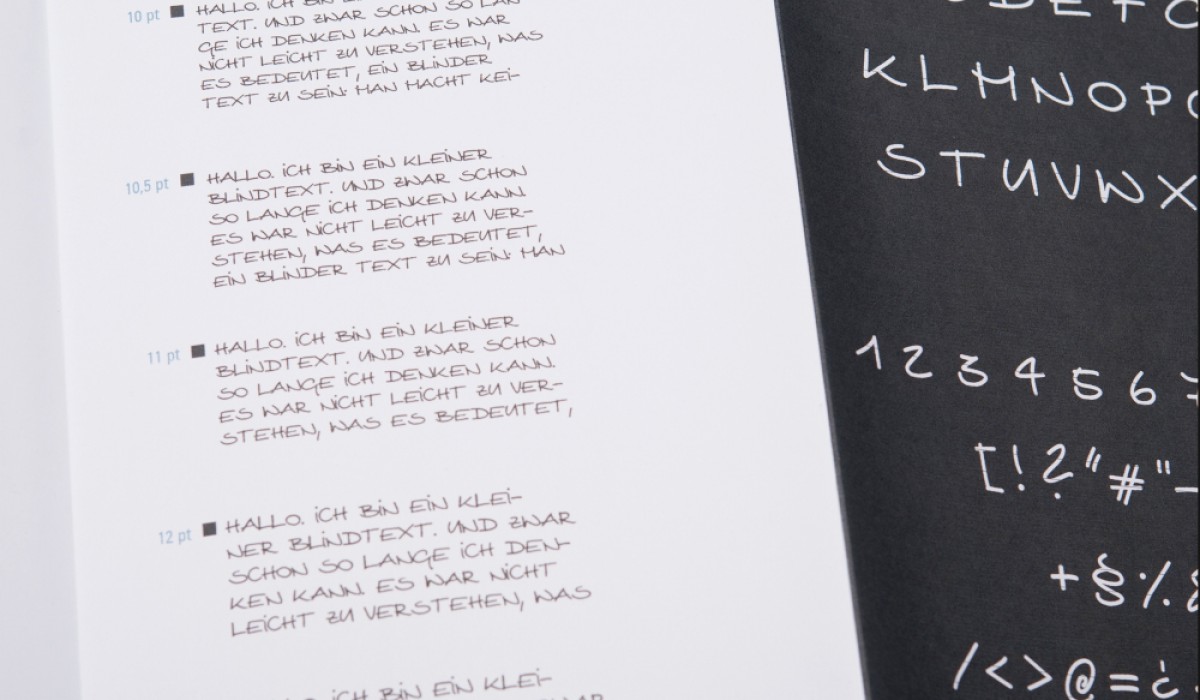 10 pt ■ HALLO. iCH BiN EiN
TEXT. UND ZWAR SCHON SO LAN
GE iCH DENKEN KANN. ES WAR
NiCHT LEiCHT ZU VERSTEHEN, WAS
ES BEDEUTET, EiN BLiNDER
TEXT ZU SEiN: MAN MACHT KEi-
10,5 pt ■ HALLO. iCH BiN EiN KLEiNER
BLiNDTEXT. UND ZWAR SCHON
SO LANGE iCH DENKEN KANN.
ES WAR NiCHT LEiCHT ZU VER-
STEHEN, WAS ES BEDEUTET,
EiN BLiNDER TEXT ZU SEiN: MAN
11 pt ■ HALLO. iCH BiN EiN KLEiNER
BLiNDTEXT. UND ZWAR SCHON
SO LANGE iCH DENKEN KANN.
ES WAR NiCHT LEiCHT ZU VER-
STEHEN, WAS ES BEDEUTET,
12 pt ■ HALLO. iCH BiN EiN KLEi-
NER BLiNDTEXT. UND ZWAR
SCHON SO LANGE iCH DEN-
KEN KANN. ES WAR NiCHT
LEiCHT ZU VERSTEHEN, WAS
iCH BiN EiN KLEi-
D E F G
K L M N O P Q
S T U V W X
1 2 3 4 5 6 7
[ ! ? " # " -
+ § % &
/ < > @ = ¿